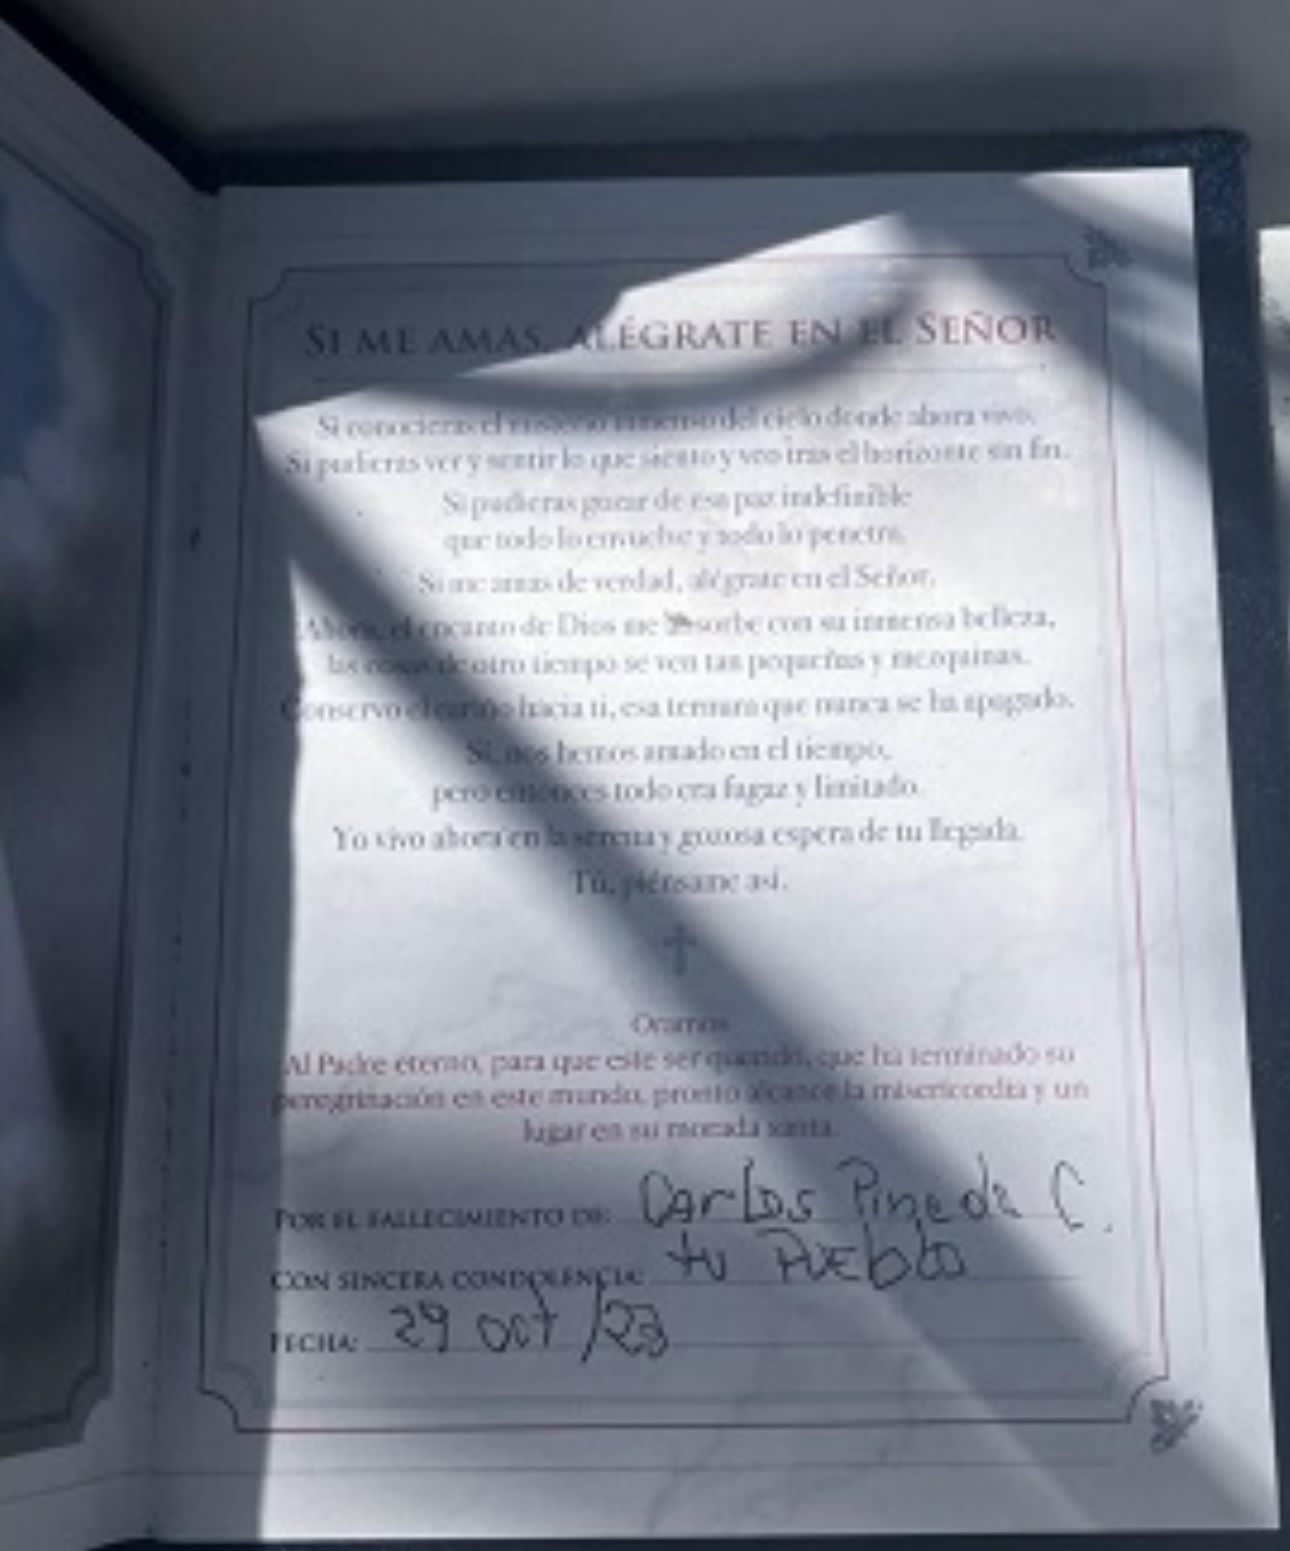 SI ME AMAS, ALÉGRATE EN EL SEÑOR
Si conocieras el misterio inmenso del cielo donde ahora vivo.
Si pudieras ver y sentir lo que siento y veo tras el horizonte sin fin.
Si pudieras gozar de esa paz indefinible
que todo lo envuelve y todo lo penetra.
Si me amas de verdad, alégrate en el Señor.
Ahora, el encanto de Dios me absorbe con su inmensa belleza,
las cosas de otro tiempo se ven tan pequeñas y mezquinas.
Conservo el cariño hacia ti, esa ternura que nunca se ha apagado.
Sí, nos hemos amado en el tiempo,
pero entonces todo era fugaz y limitado.
Yo vivo ahora en la serena y gozosa espera de tu llegada.
Tú, piénsame así.
Oramos
Al Padre eterno, para que este ser querido, que ha terminado su
peregrinación en este mundo, pronto alcance la misericordia y un
lugar en su morada santa.
POR EL FALLECIMIENTO DE: Carlos Pineda C.
CON SINCERA CONDOLENCIA: tu Pueblo
FECHA: 29 oct /23